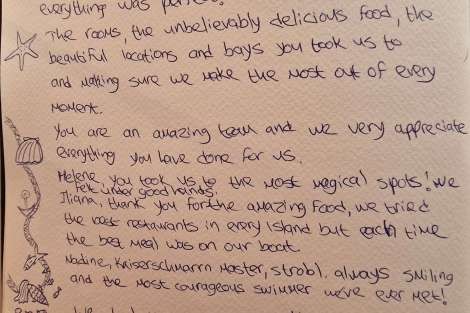 everything was
The rooms, the unbelievably delicious food, the
beautiful locations and bays you took us to
and making sure we make the most out of every
moment.
You are an amazing team and we very appreciate
everything you have done for us.
Helene, you took us to the most magical spots! We
felt under good hands.
Iliana, thank you for the amazing food, we tried
the best restaurants in every island but each time
the best meal was on our boat.
Nadine, Kaiserschmarrn Master, Strobl. always smiling
and the most courageous swimmer we've ever met!